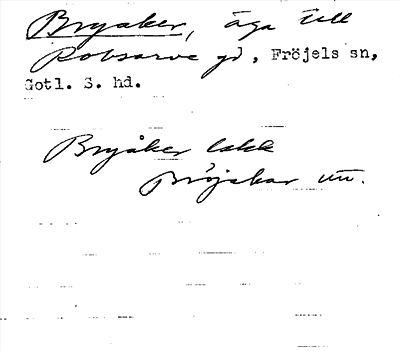 Bryaker, äga till
Robsarve gd, Fröjels sn,
Gotl. S. hd.
Bryåker lakk
Bröjakar un.